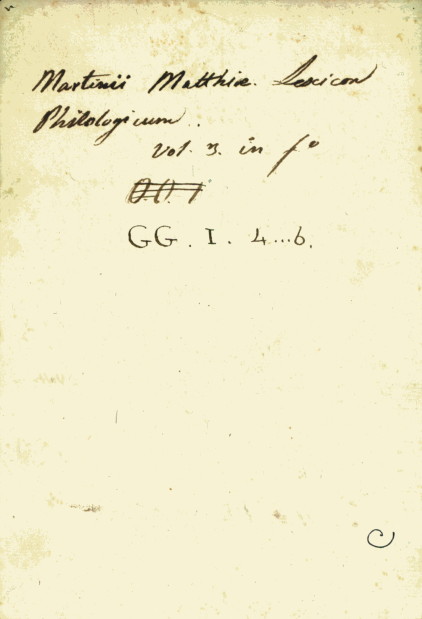 Martinii Matthiæ. Lexicon
Philologicum.
Vol. 3. in fº
GG. I. 4...6.